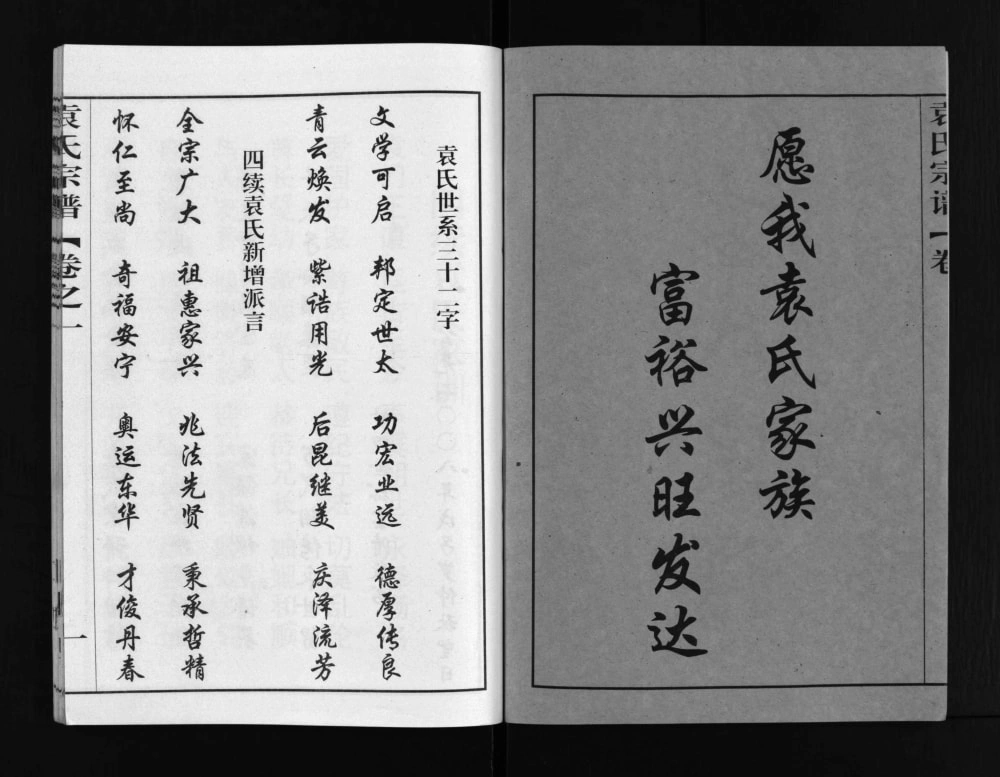 袁氏宗谱【卷
愿我袁氏家族
富裕兴旺发达
袁氏世系三十二字
文学可启 邦定世太 功宏业远 德厚传良
青云焕发 紫诰用光 后昆继美 庆泽流芳
四续袁氏新增派言
全宗广大 祖惠家兴 兆法先贤 秉承哲精
怀仁至尚 奇福安宁 奥运东华 才俊丹春
袁氏宗谱【卷之一
一